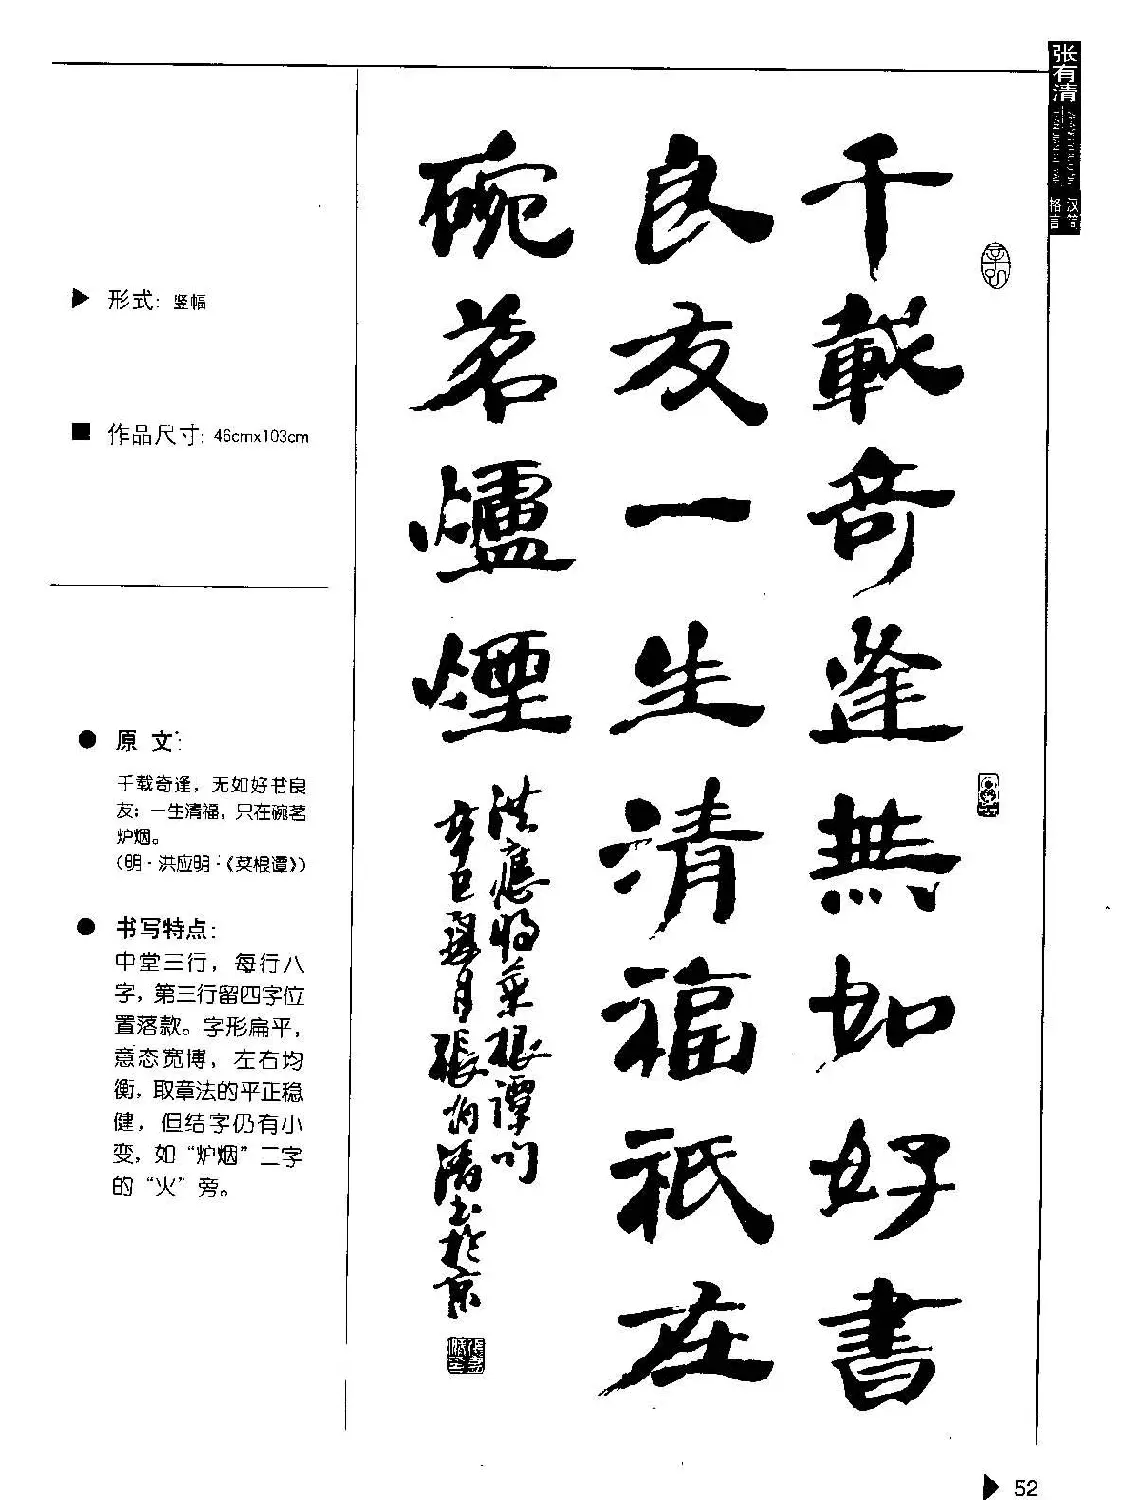 张有清
汉简
格言
千載奇逢無如好書
良友一生清福祇在
碗茗爐煙
洪應明菜根譚句
辛巳
月張有清書於京
形式：竖幅
作品尺寸：46cmx103cm
原文：
千载奇逢，无如好书良
友；一生清福，只在碗茗
炉烟。
（明·洪应明·《菜根谭》）
书写特点：
中堂三行，每行八
字，第三行留四字位
置落款。字形扁平，
意态宽博，左右均
衡，取章法的平正稳
健，但结字仍有小
变，如“炉烟”二字
的“火”旁。
52